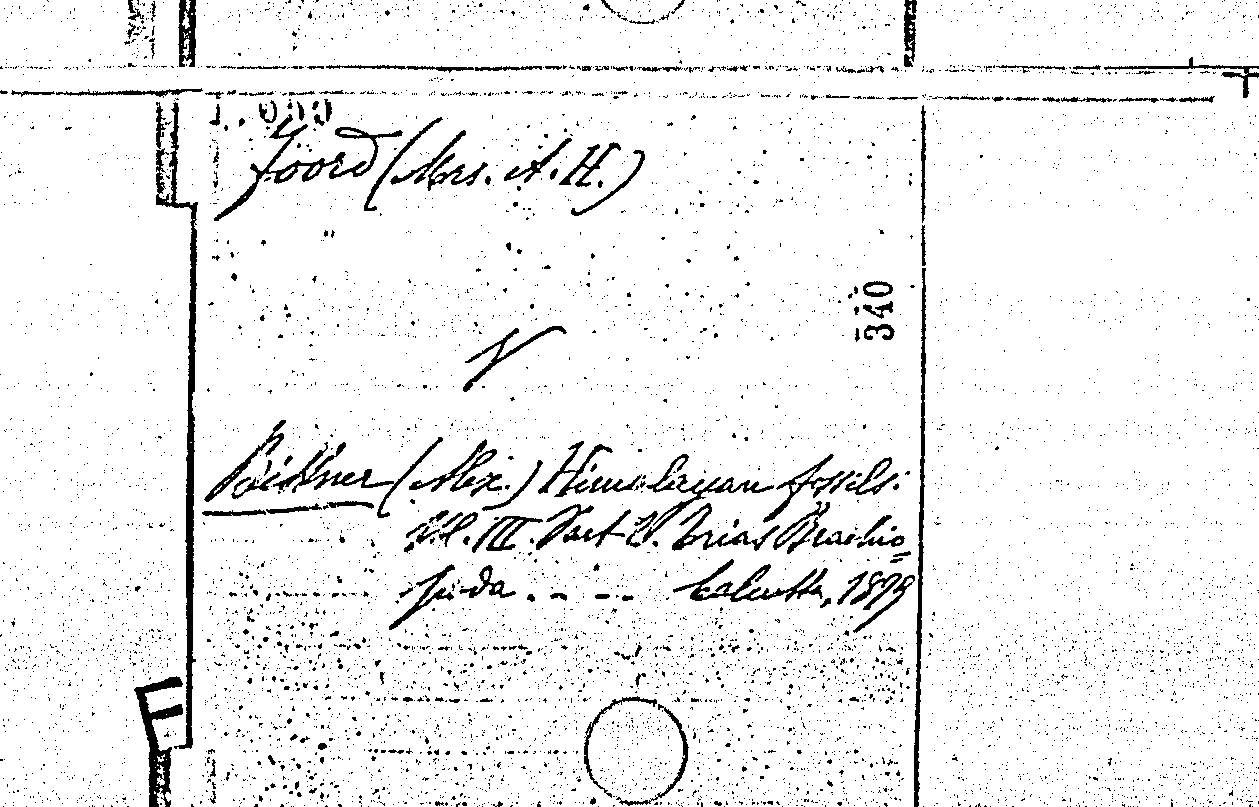 Foord (Mrs. A. H.)
340
Bittner (Alex.) Himalayan fossils.
Vol. III. Part 2. Trias Brachio=
poda . - - - Calcutta, 1899